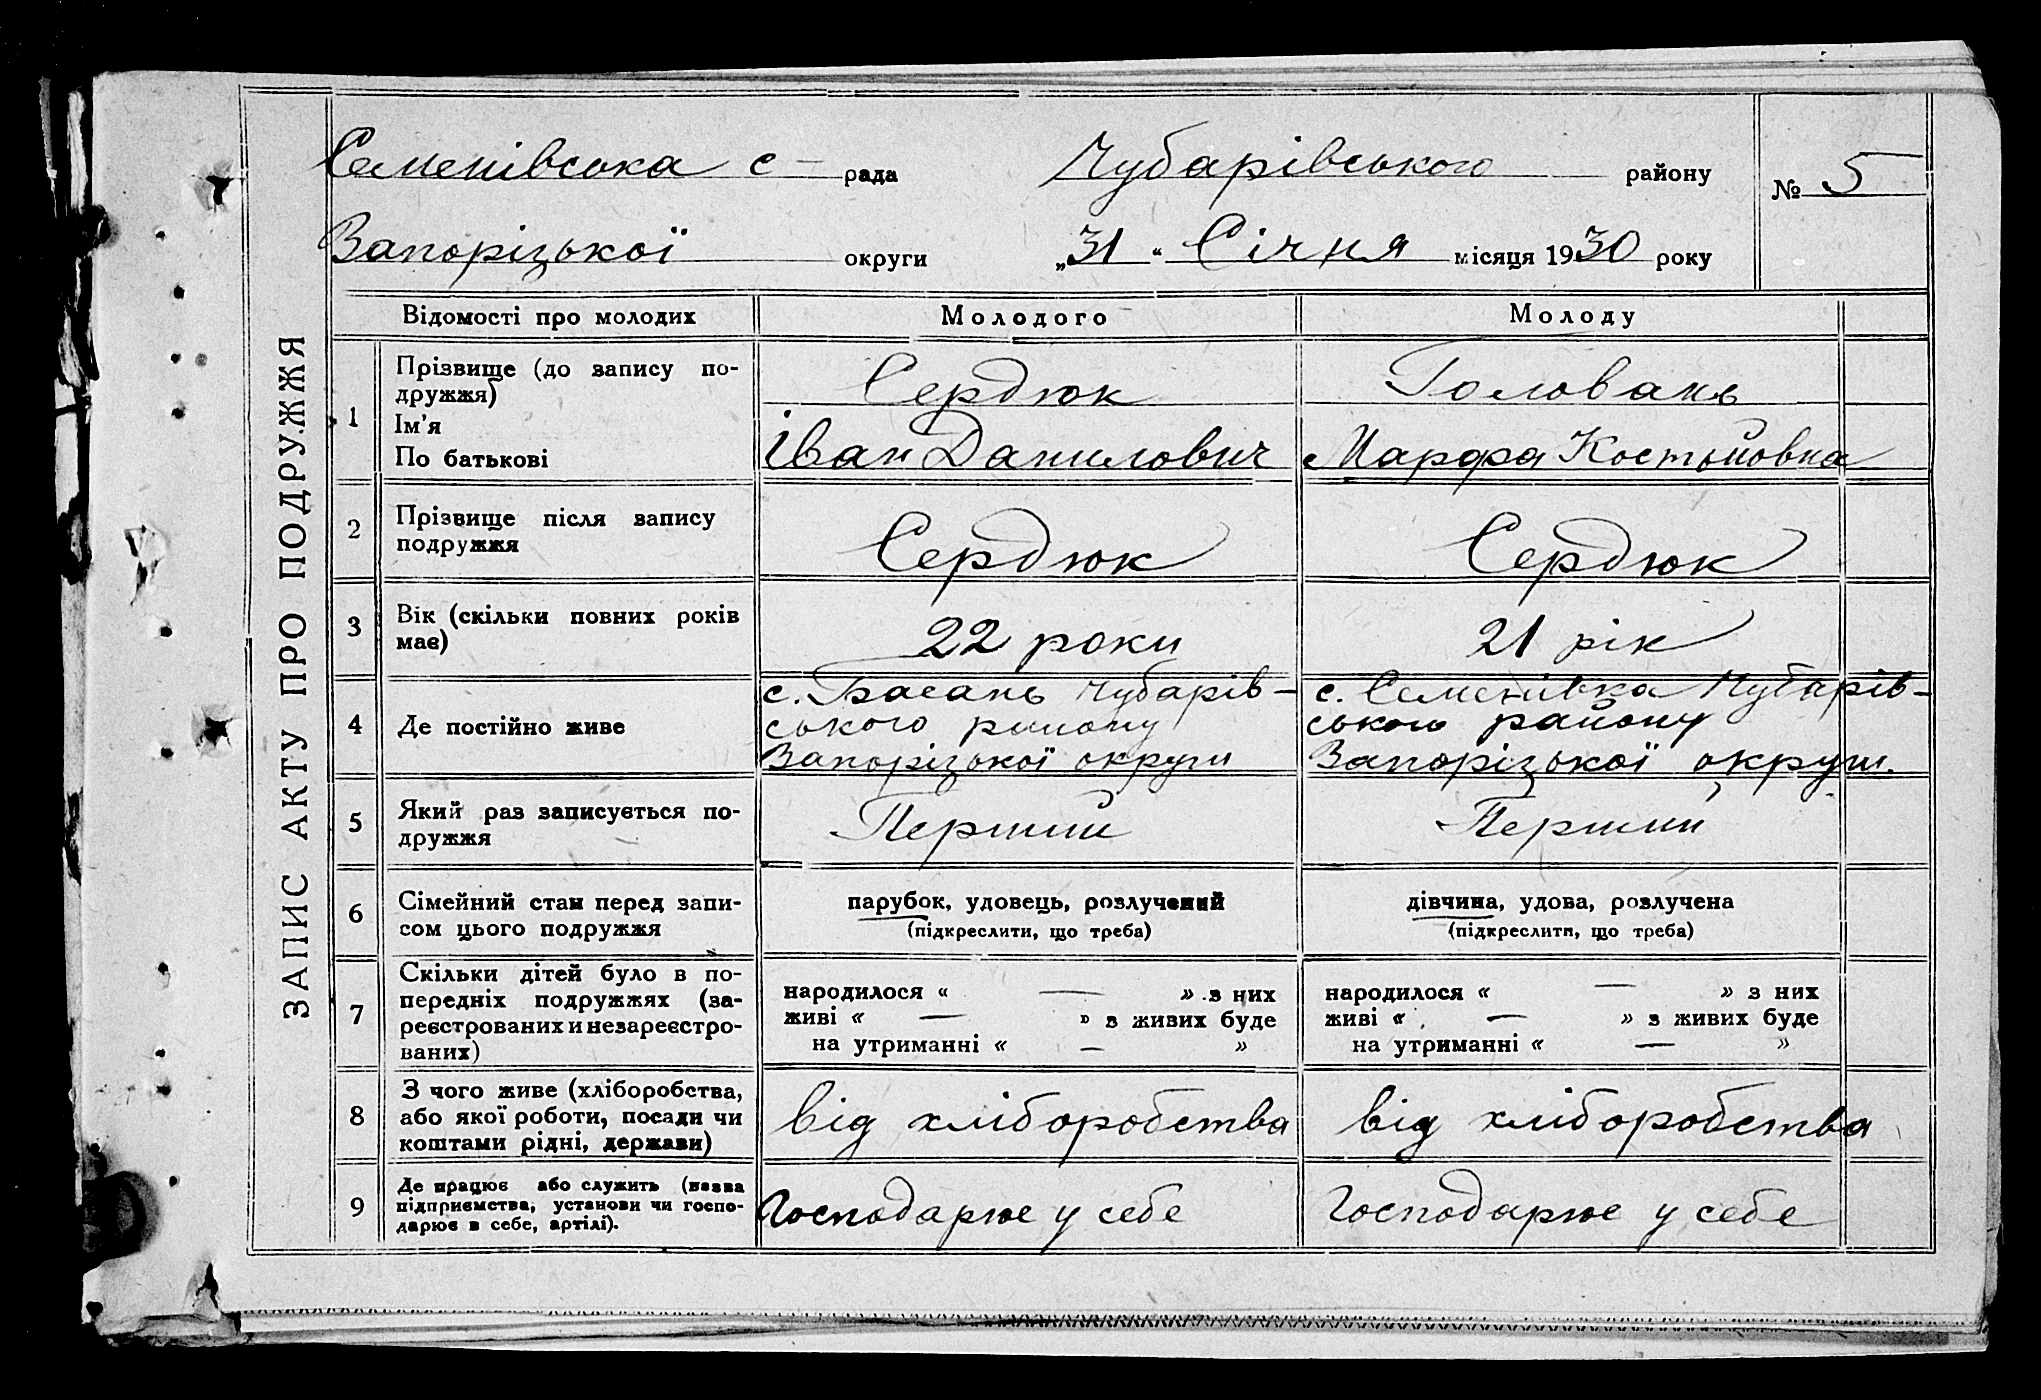 ЗАПИС АКТУ ПРО ПОДРУЖЖЯ
Семенівська с – рада Чубарівського району № 5
Запорізької округи „31“ Січня місяця 1930 року
Відомості про молодих Молодого Молоду
1 Прізвище (до запису по-
дружжя) Сердюк Головань
Ім’я
По батькові Іван Данилович Марфа Костьовна
2 Прізвище після запису
подружжя Сердюк Сердюк
3 Вік (скільки повних років
має) 22 роки 21 рік
4 Де постійно живе
с. Басань Чубарів-
ського району
Запорізької округи
с. Семенівка Чубарів-
ського району
Запорізької округи.
5 Який раз записується по-
дружжя Перший Перший
6 Сімейний стан перед запи-
сом цього подружжя
парубок, удовець, розлучений
(підкреслити, що треба)
дівчина, удова, розлучена
(підкреслити, що треба)
7 Скільки дітей було в по-
передніх подружжях (за-
реєстрованих и незареєстро-
ваних)
народилося « — » з них
живі « — » з живих буде
на утриманні « — »
народилося « — » з них
живі « — » з живих буде
на утриманні « — »
8 З чого живе (хліборобства,
або якої роботи, посади чи
коштами рідні, держави)
від хліборобства від хліборобства
9 Де працює або служить (назва
підприємства, установи чи госпо-
дарює в себе, артілі).
Господарює у себе Господарює у себе